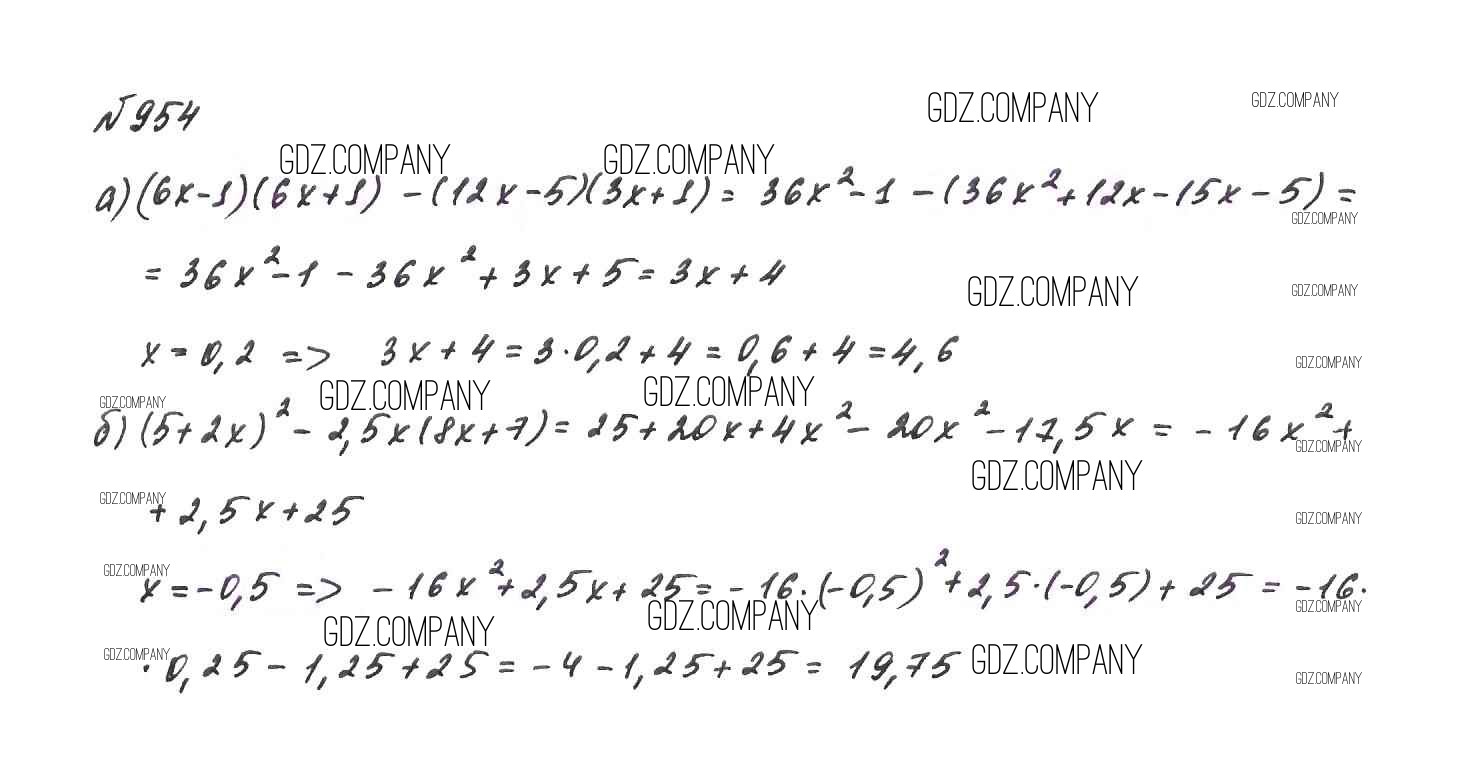 №954
GDZ.COMPANY GDZ.COMPANY
GDZ.COMPANY GDZ.COMPANY
а) (6x-1)(6x+1) - (12x-5)(3x+1) = 36x²-1 - (36x²+12x-15x-5) =
GDZ.COMPANY
= 36x²-1 - 36x² + 3x + 5 = 3x + 4
GDZ.COMPANY GDZ.COMPANY
x = 0,2 => 3x + 4 = 3·0,2 + 4 = 0,6 + 4 = 4,6
GDZ.COMPANY
GDZ.COMPANY GDZ.COMPANY GDZ.COMPANY
б) (5+2x)² - 2,5x(8x+7) = 25+20x+4x² - 20x² - 17,5x = -16x² +
GDZ.COMPANY
GDZ.COMPANY
GDZ.COMPANY
+ 2,5x + 25
GDZ.COMPANY
GDZ.COMPANY
x = -0,5 => -16x² + 2,5x + 25 = -16·(-0,5)² + 2,5·(-0,5) + 25 = -16·
GDZ.COMPANY GDZ.COMPANY GDZ.COMPANY
GDZ.COMPANY
·0,25 - 1,25 + 25 = -4 - 1,25 + 25 = 19,75
GDZ.COMPANY
GDZ.COMPANY